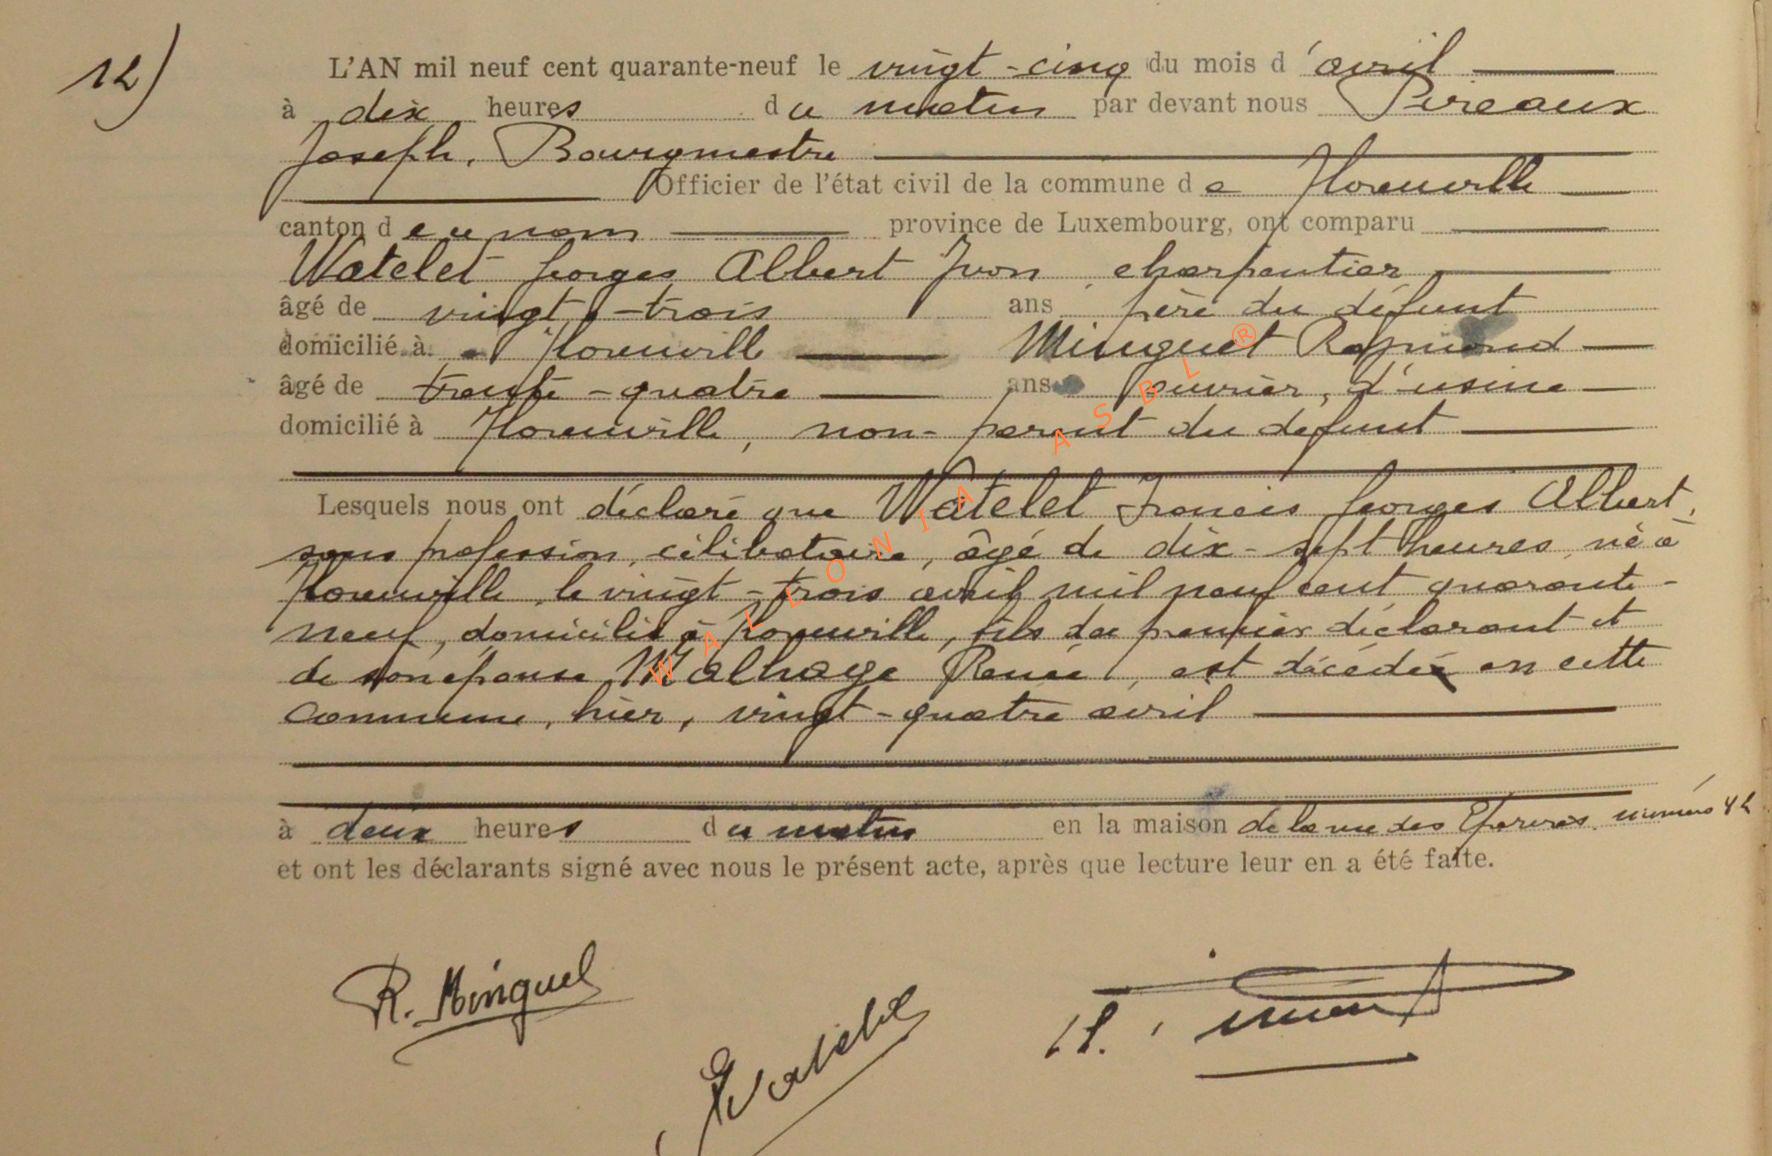 12)
L'AN mil neuf cent quarante-neuf le vingt-cinq du mois d'avril
à dix heures du matin par devant nous Pireaux
Joseph, Bourgmestre
Officier de l'état civil de la commune de Florenville
canton de ce nom province de Luxembourg, ont comparu
Watelet Georges Albert Yvon, charpentier
âgé de vingt-trois ans père du défunt
domicilié à Florenville Minguet Raymond
âgé de trente-quatre ans ouvrier d'usine
domicilié à Florenville, non-parent du défunt
Lesquels nous ont déclaré que Watelet Francis Georges Albert,
sans profession, célibataire, âgé de dix-sept heures, né à
Florenville, le vingt-trois avril mil neuf cent quarante-
neuf, domicilié à Florenville, fils du premier déclarant et
de son épouse Malhage Renée, est décédé en cette
commune, hier, vingt-quatre avril
à deux heures du matin en la maison de la rue des Eparres, numéro 42
et ont les déclarants signé avec nous le présent acte, après que lecture leur en a été faite.
R. Minguet
Watelet
WALLONIA ASBL ®